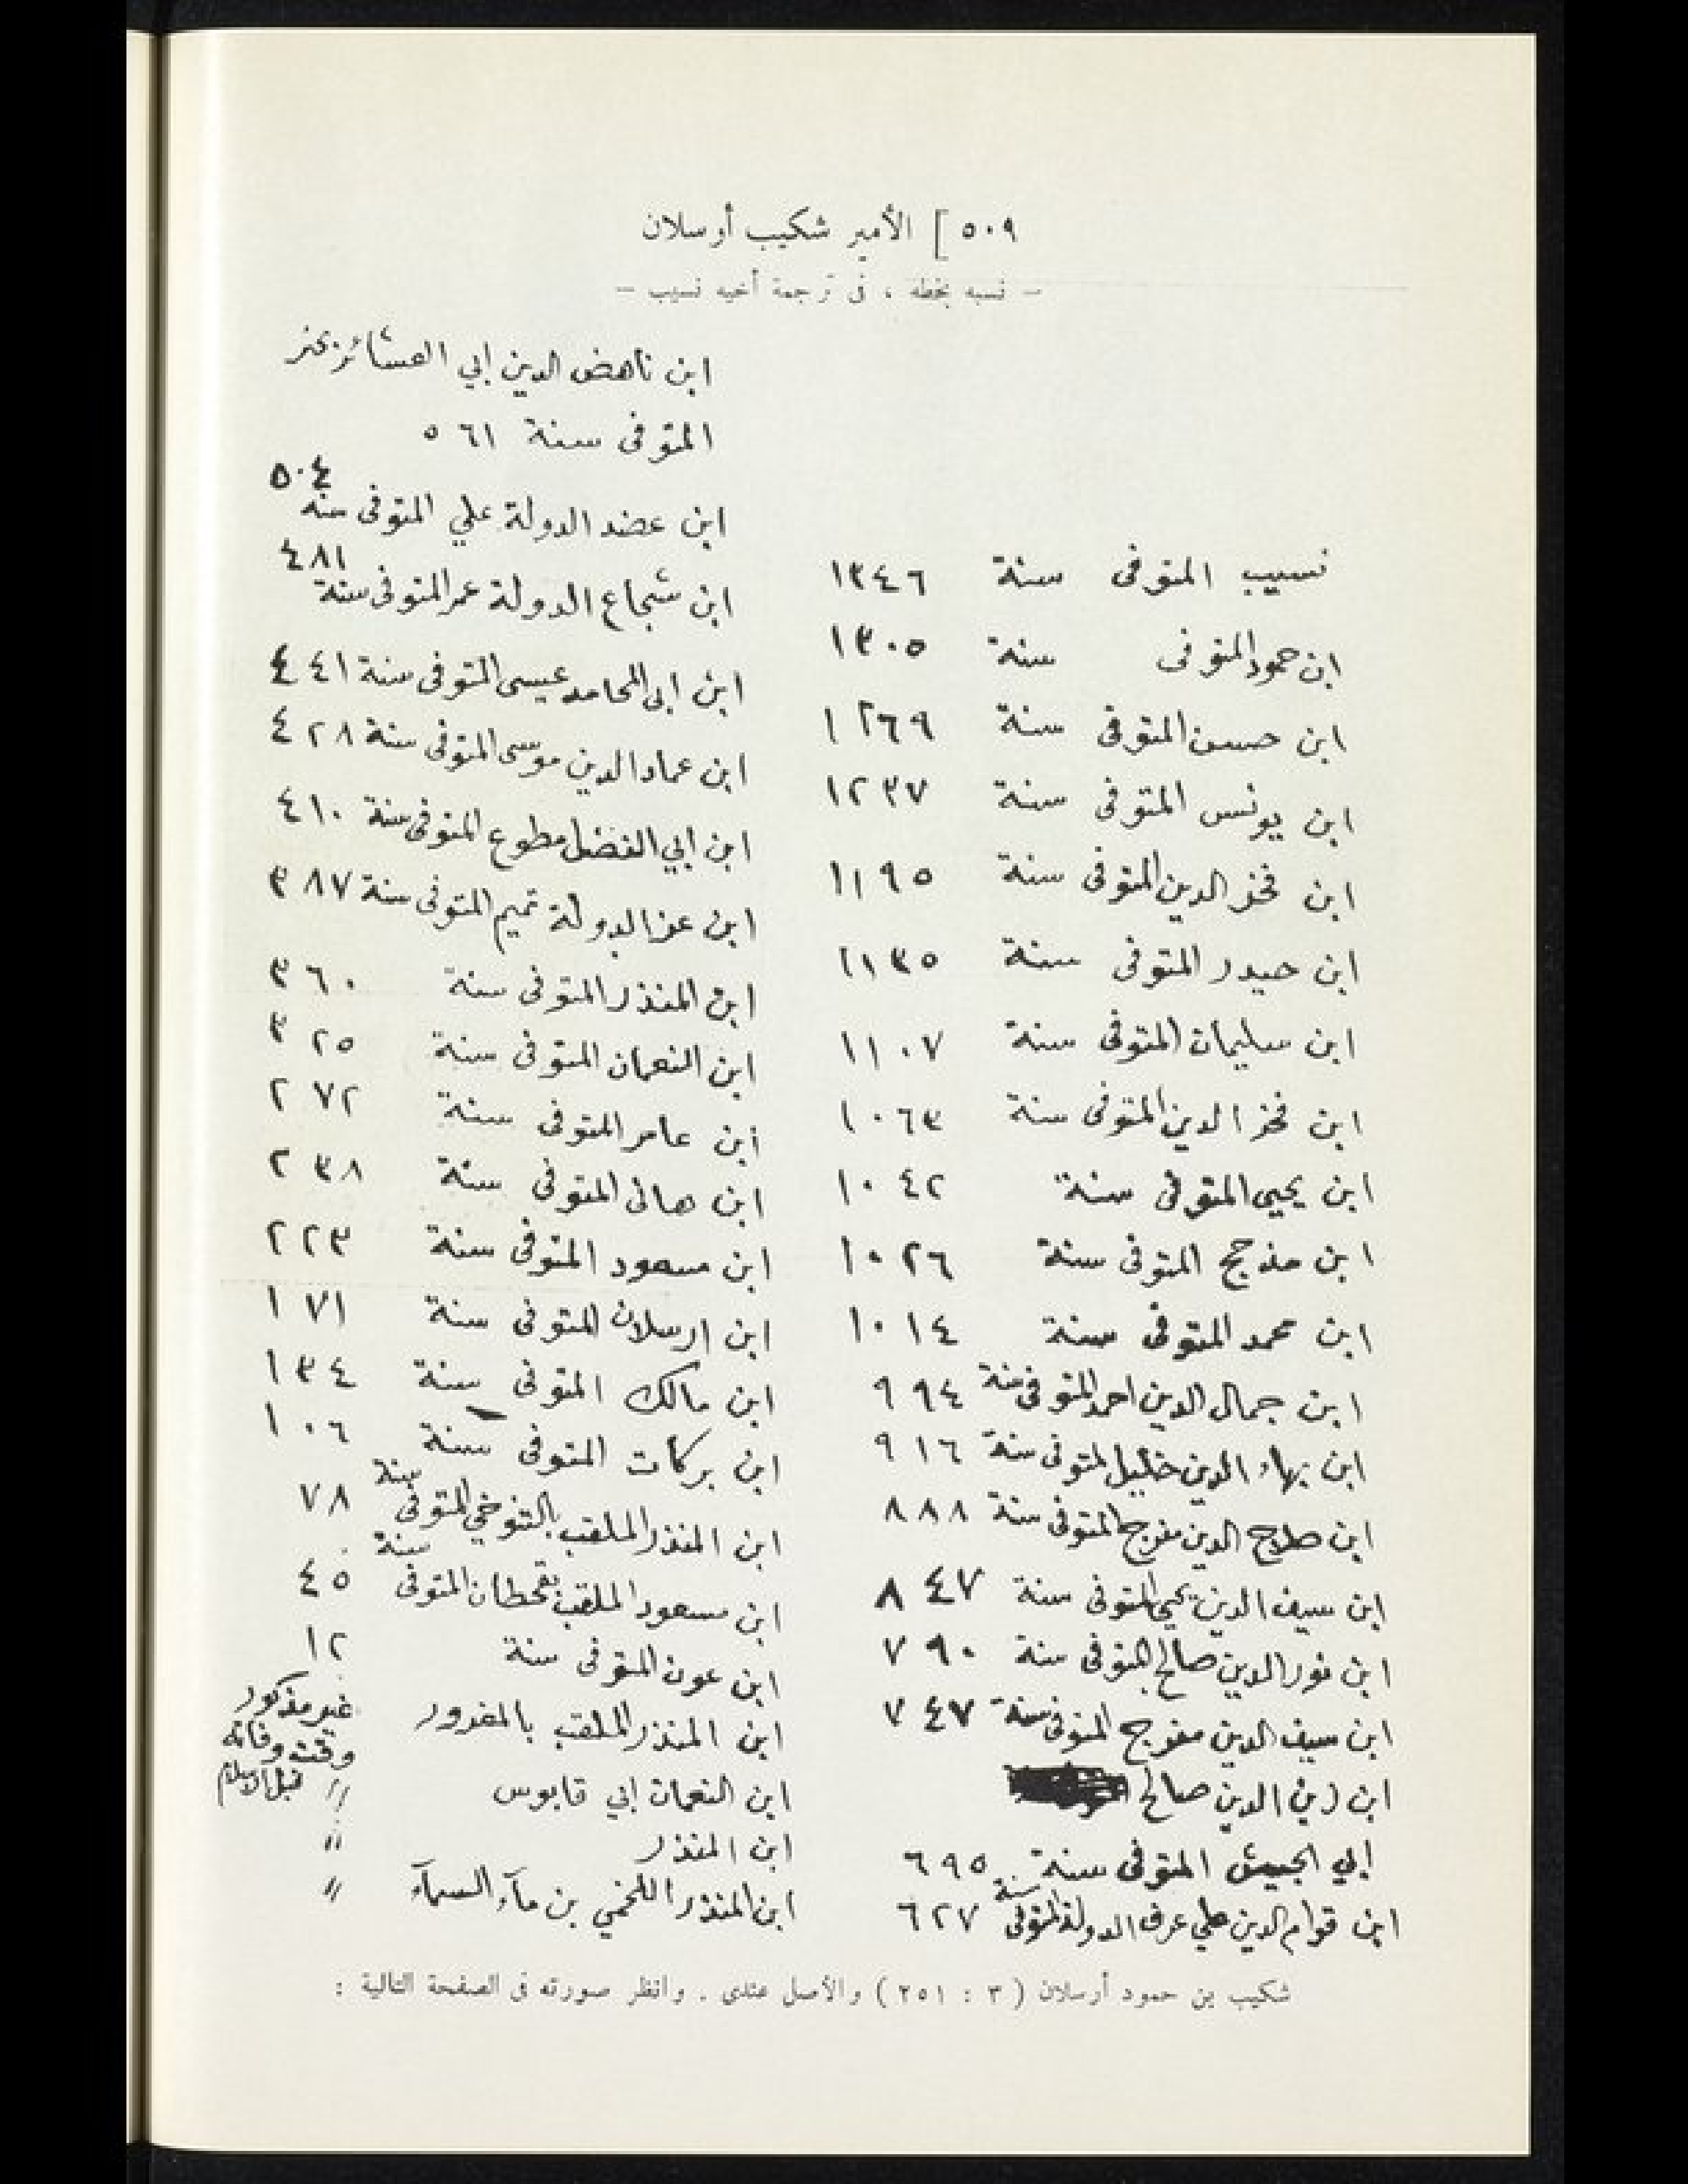 ٥٠٩ [ الأمير شكيب أرسلان
— نسبه بخطه ، فى ترجمة أخيه نسيب —
نسيب المتوفى سنة ١٣٤٦
ابن حمود المتوفى سنة ١٣٠٥
ابن حسن المتوفى سنة ١٢٦٩
ابن يونس المتوفى سنة ١٢٣٧
ابن فخر الدين المتوفى سنة ١١٩٥
ابن حيدر المتوفى سنة ١١٣٥
ابن سليمان المتوفى سنة ١١٠٧
ابن فخر الدين المتوفى سنة ١٠٦٣
ابن يحيى المتوفى سنة ١٠٤٢
ابن مذحج المتوفى سنة ١٠٢٦
ابن محمد المتوفى سنة ١٠١٤
ابن جمال الدين احمد المتوفى سنة ٩٩٤
ابن بهاء الدين خليل المتوفى سنة ٩١٦
ابن صلاح الدين مفرج المتوفى سنة ٨٨٨
ابن سيف الدين يحيى المتوفى سنة ٨٤٧
ابن نور الدين صالح المتوفى سنة ٧٩٠
ابن سيف الدين مفرج المتوفى سنة ٧٤٧
ابن زين الدين صالح
ابي الجيش المتوفى سنة ٦٩٥
ابن قوام الدين علي عرف الدولة المتوفى سنة ٦٢٧
ابن ناهض الدين ابي العشائر بحتر
المتوفى سنة ٥٦١
ابن عضد الدولة علي المتوفى سنه ٥٠٤
ابن شجاع الدولة عمر المتوفى سنة ٤٨١
ابن ابي المحامد عيسى المتوفى سنة ٤٤١
ابن عماد الدين موسى المتوفى سنة ٤٢٨
ابن ابي الفضل مطوع المتوفى سنة ٤١٠
ابن عز الدولة تميم المتوفى سنة ٣٨٧
ابن المنذر المتوفى سنة ٣٦٠
ابن النعمان المتوفى سنة ٣٢٥
ابن عامر المتوفى سنة ٢٧٢
ابن هانى المتوفى سنة ٢٣٨
ابن مسعود المتوفى سنة ٢٢٣
ابن ارسلان المتوفى سنة ١٧١
ابن مالك المتوفى سنة ١٣٤
ابن بركات المتوفى سنة ١٠٦
ابن المنذر الملقب بالتنوخي المتوفى سنة ٧٨
ابن مسعود الملقب بقحطان المتوفى سنة ٤٥
ابن عون المتوفى سنة ١٢
ابن المنذر الملقب بالمغرور غير مذكور
وقت وفاته
قبل الاسلام
ابن النعمان ابي قابوس "
ابن المنذر "
ابن المنذر اللخمي بن مآء السمآء "
شكيب بن حمود أرسلان ( ٣ : ٢٥١ ) والأصل عندى . وانظر صورته فى الصفحة التالية :